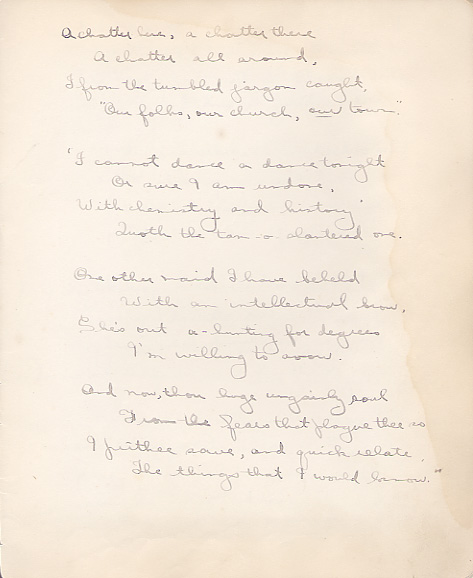 A chatter here, a chatter there
A chatter all around,
I from the tumbled jargon caught,
"Our folks, our church, our town."
'I cannot dance a dance tonight
Or sure I am undone,
With chemistry and history'
Quoth the tam-o-shantered one.
One other maid I have beheld
With an intellectual brow,
She's out a-hunting for degrees
I'm willing to avow.
And now, thou huge ungainly soul
From the fears that plague thee so
I prithee save, and quick relate,
The things that I would know."